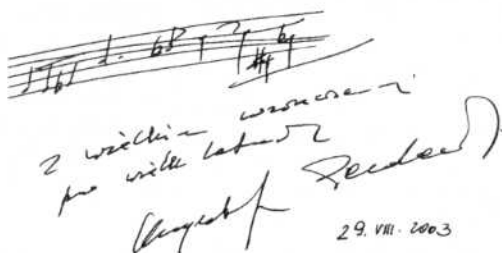 z wielkim wzruszeniem
po wielu latach
Krzysztof Penderecki
29. VIII. 2003